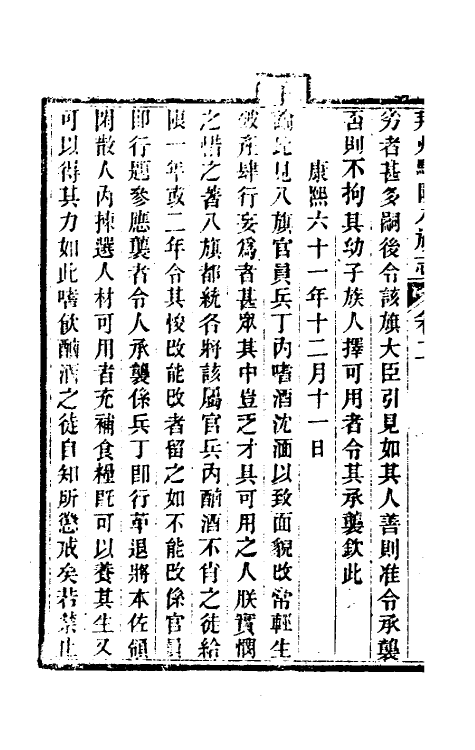 州駐防八旗志 卷二
勞者甚多嗣後令該旗大臣引見如其人善則准令承襲
否則不拘其幼子族人擇可用者令其承襲欽此
康熙六十一年十二月十一日
諭比見八旗官員兵丁內嗜酒沈湎以致面貌改常輕生
破產肆行妄爲者甚眾其中豈乏才具可用之人朕實憫
之惜之著八旗都統各將該屬官兵內酗酒不肖之徒給
限一年或二年令其悛改能改者留之如不能改係官員
即行題參應襲者令人承襲係兵丁即行革退將本佐領
閑散人內揀選人材可用者充補食糧既可以養其生又
可以得其力如此嗜飲酗酒之徒自知所懲戒矣若禁止